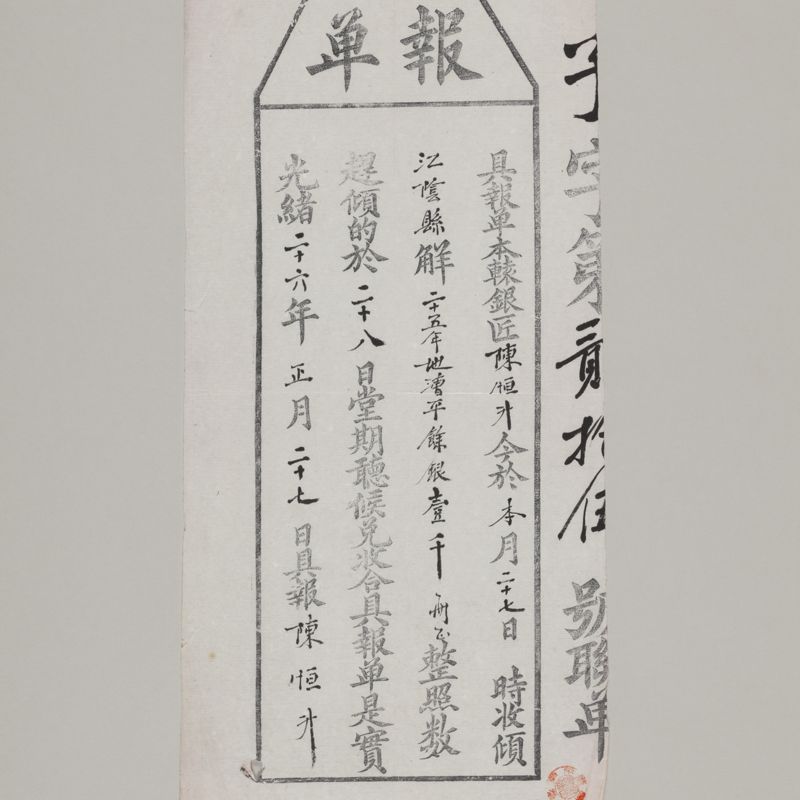 報单
子字第貳拾伍號聯单
具報单本轅銀匠陳恒升今於本月二十七日時收傾
江陰縣解二十五年地漕平餘銀壹千整照数
趕傾的於二十八日堂期聽候兑收合具報单是實
光緒二十六年正月二十七日具報陳恒升